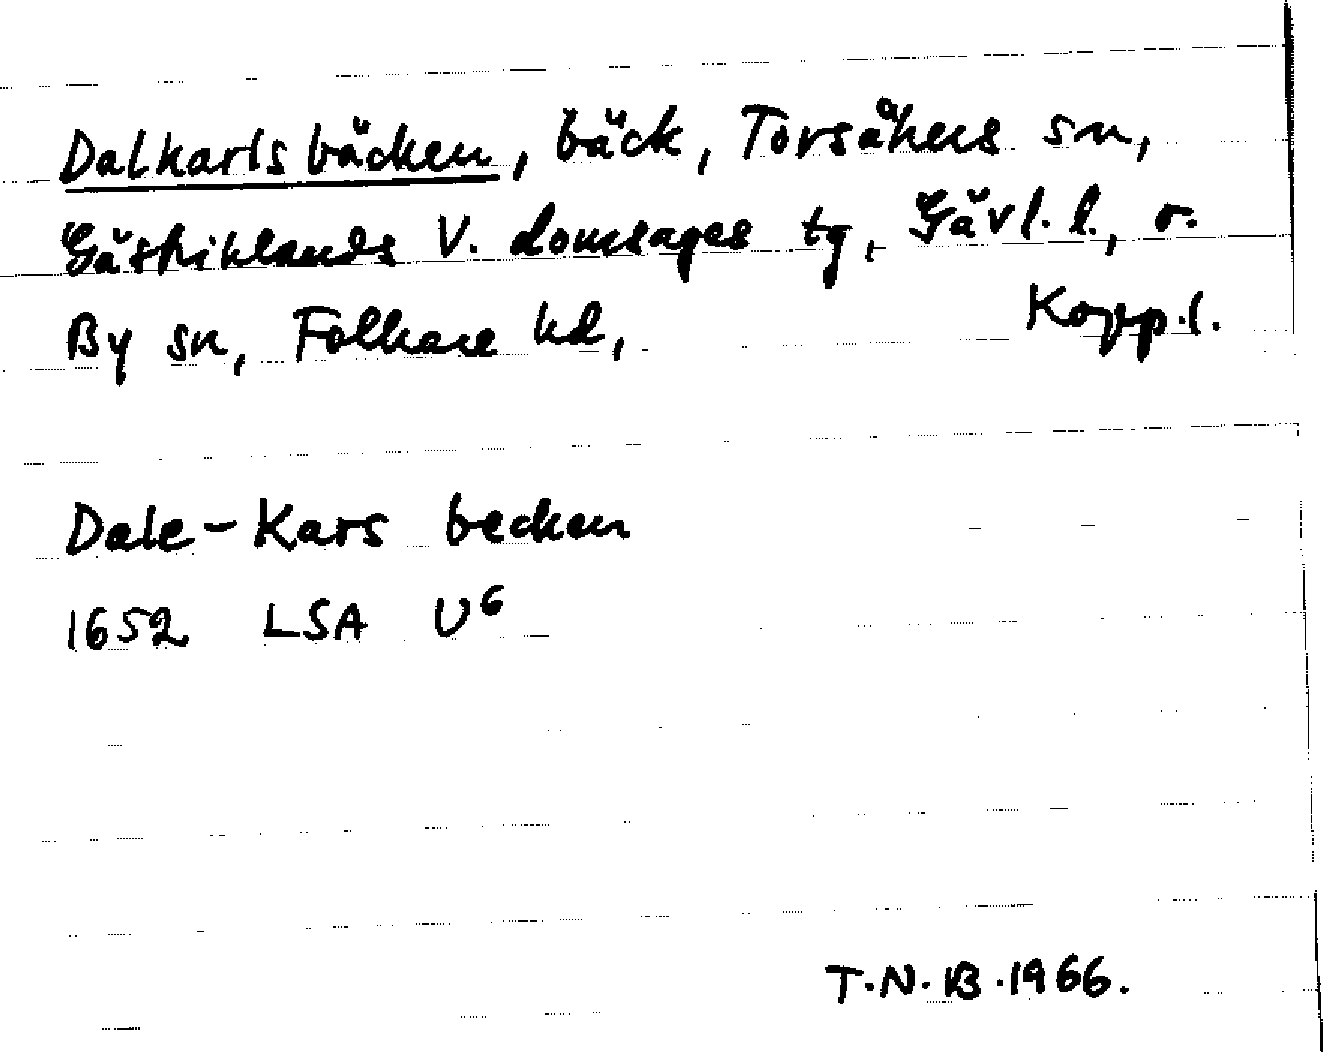 Dalkarlsbäcken, bäck, Torsåkers sn,
Gästriklands V. domsagas tg, Gävl. l., o.
By sn, Folkare hd, Kopp.l.
Dale-Kars becken
1652 LSA U⁶
T.N.B.1966.